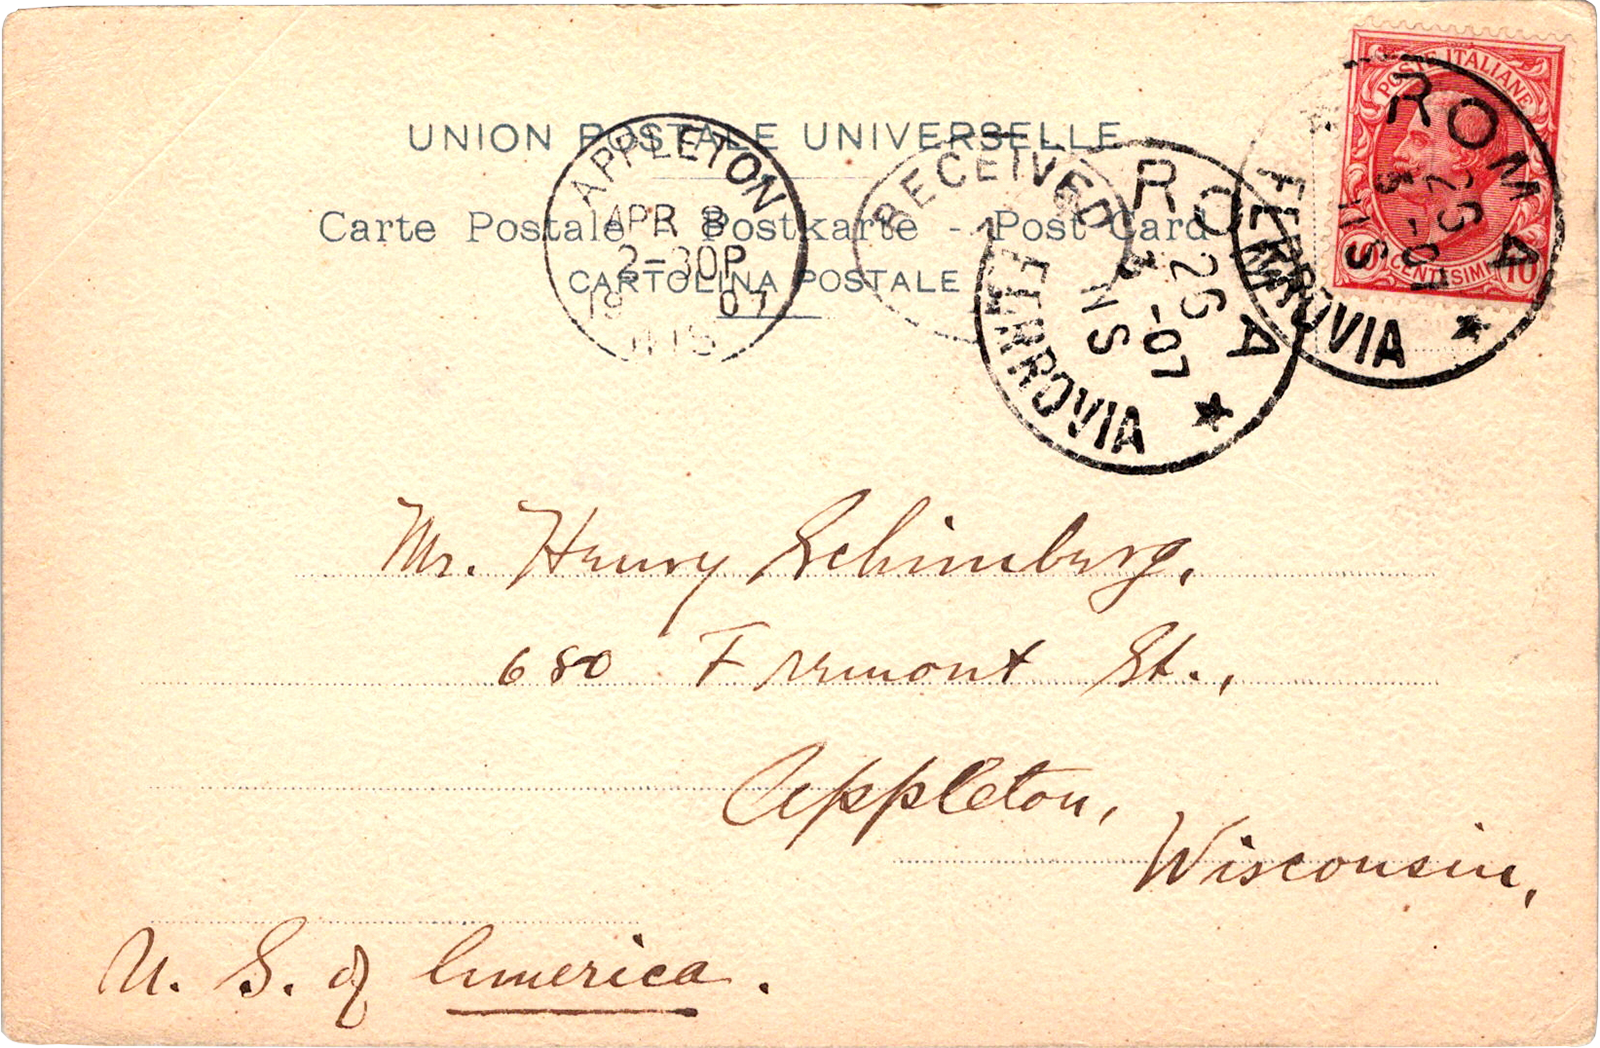 UNION POSTALE UNIVERSELLE
Carte Postale - Postkarte - Post Card
CARTOLINA POSTALE
APPLETON
APR 8
2-30P
19 07
WIS
RECEIVED
ROMA
25
3 -07
11S
FERROVIA
ROMA
26
3 -07
11S
FERROVIA
POSTE ITALIANE
CENTESIMI 10
Mr. Henry Schimberg,
680 Fremont St.,
Appleton,
Wisconsin,
U. S. of America.